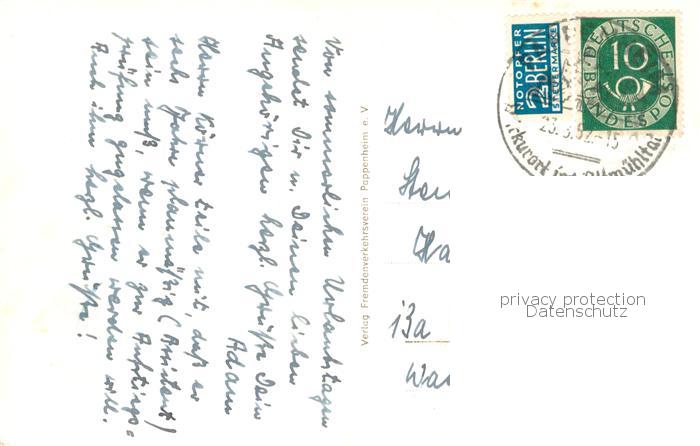 Von sommerlichen Urlaubstagen
sendet Dir u. Deinen lieben
Angehörigen herzl. Grüße Dein
Adam
Herrn Körner teile mit, daß er
sechs Jahre planmäßig (Assistent)
sein muß, wenn er zur Aufstiegs=
prüfung zugelassen werden will.
Auch ihm herzl. Grüße!
Verlag Fremdenverkehrsverein Pappenheim e. V.
Herrn
Ha
13a
NOTOPFER
2 BERLIN
STEUERMARKE
DEUTSCHE
BUNDESPOST
10
23.8.52-15
kurort im Altmühltal
privacy protection
Datenschutz